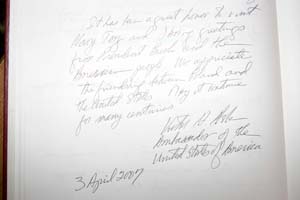 It has been a great honor to visit
Navy Day and bring greetings
from President Bush and the
American people. We appreciate
the friendship between Poland and
the United States. May it continue
for many centuries.
Victor H. Ashe
Ambassador of the
United States of America
3 April 2007